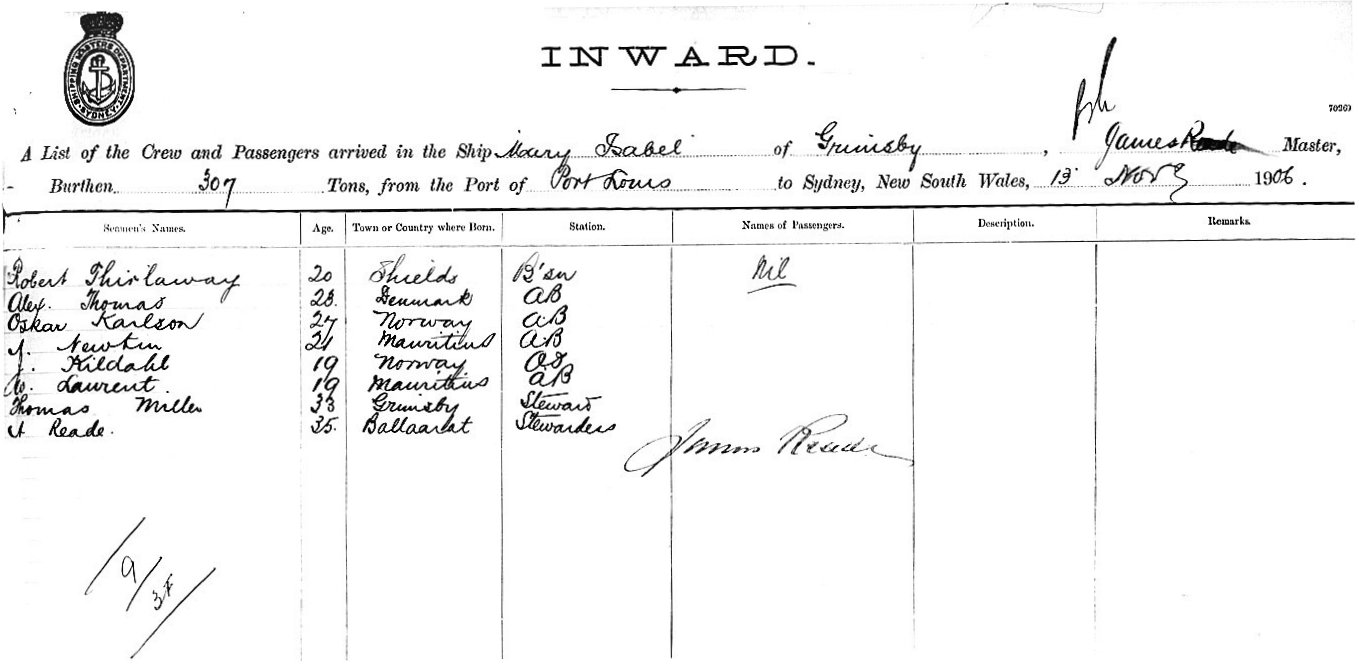 SHIPPING MASTERS DEPARTMENT. SYDNEY
INWARD.
7026)
A List of the Crew and Passengers arrived in the Ship Mary Isabel of Grimsby, James Reade Master,
Burthen 307 Tons, from the Port of Port Louis to Sydney, New South Wales, 13 Nov 1906.
Seamen's Names. Age. Town or Country where Born. Station. Names of Passengers. Description. Remarks.
Robert Thirlaway 20 Shields B'sn Nil
Alex. Thomas 23. Denmark AB
Oskar Karlson 27 Norway AB
J. Newtun 21 Mauritius AB
J. Kildahl 19 Norway OS
Laurent. 19 Mauritius AB
Thomas Miller 33 Grimsby Steward
A Reade. 35. Ballaarat Stewardess
James Reade
9/